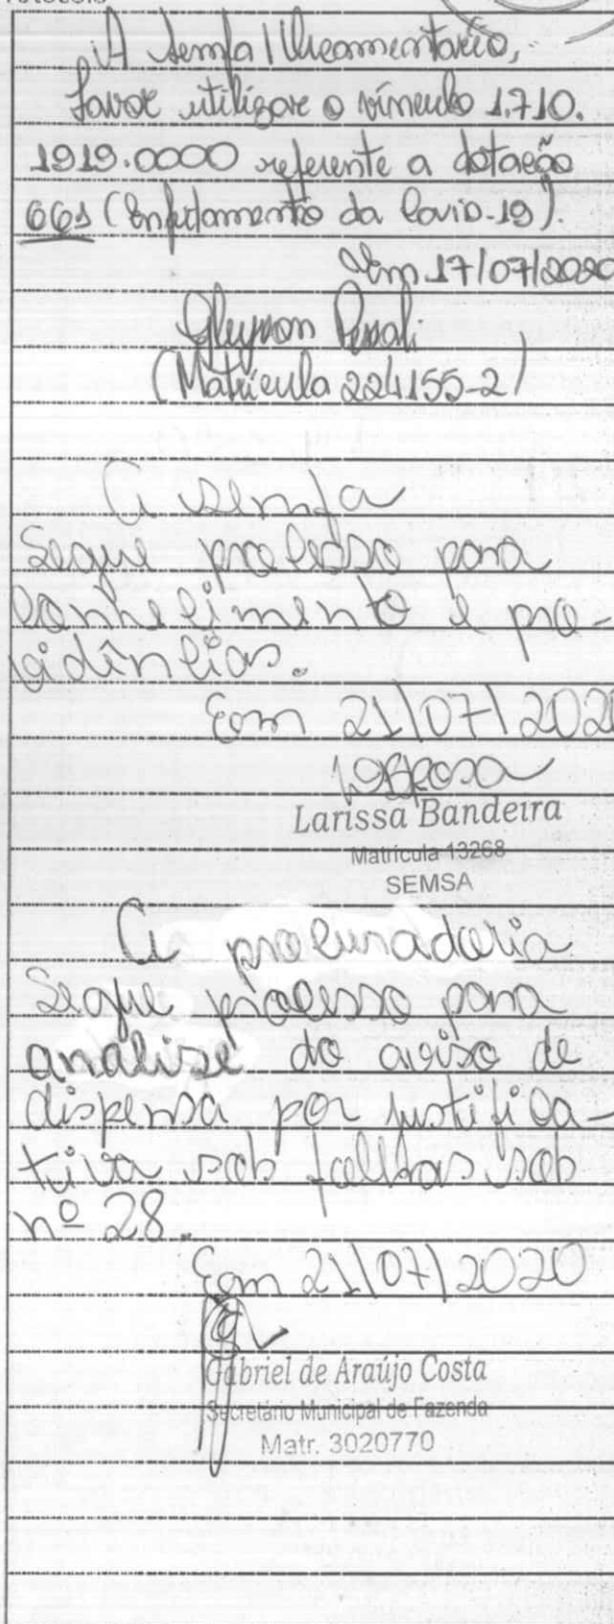 A Semfa / Orçamentário,
favor utilizar o vínculo 1.710.
1919.0000 referente a dotação
661 (Enfrentamento da Covid-19).
Em 17/07/2020
Gleyson
(Matrícula 224155-2)
A Semfa
Segue processo para
conhecimento e pro-
vidências.
Em 21/07/2020
Larissa Bandeira
Matrícula 13268
SEMSA
A procuradoria
Segue processo para
análise do aviso de
dispensa por justifica-
tiva sob folhas sob
nº 28.
Em 21/07/2020
Gabriel de Araújo Costa
Secretário Municipal de Fazenda
Matr. 3020770